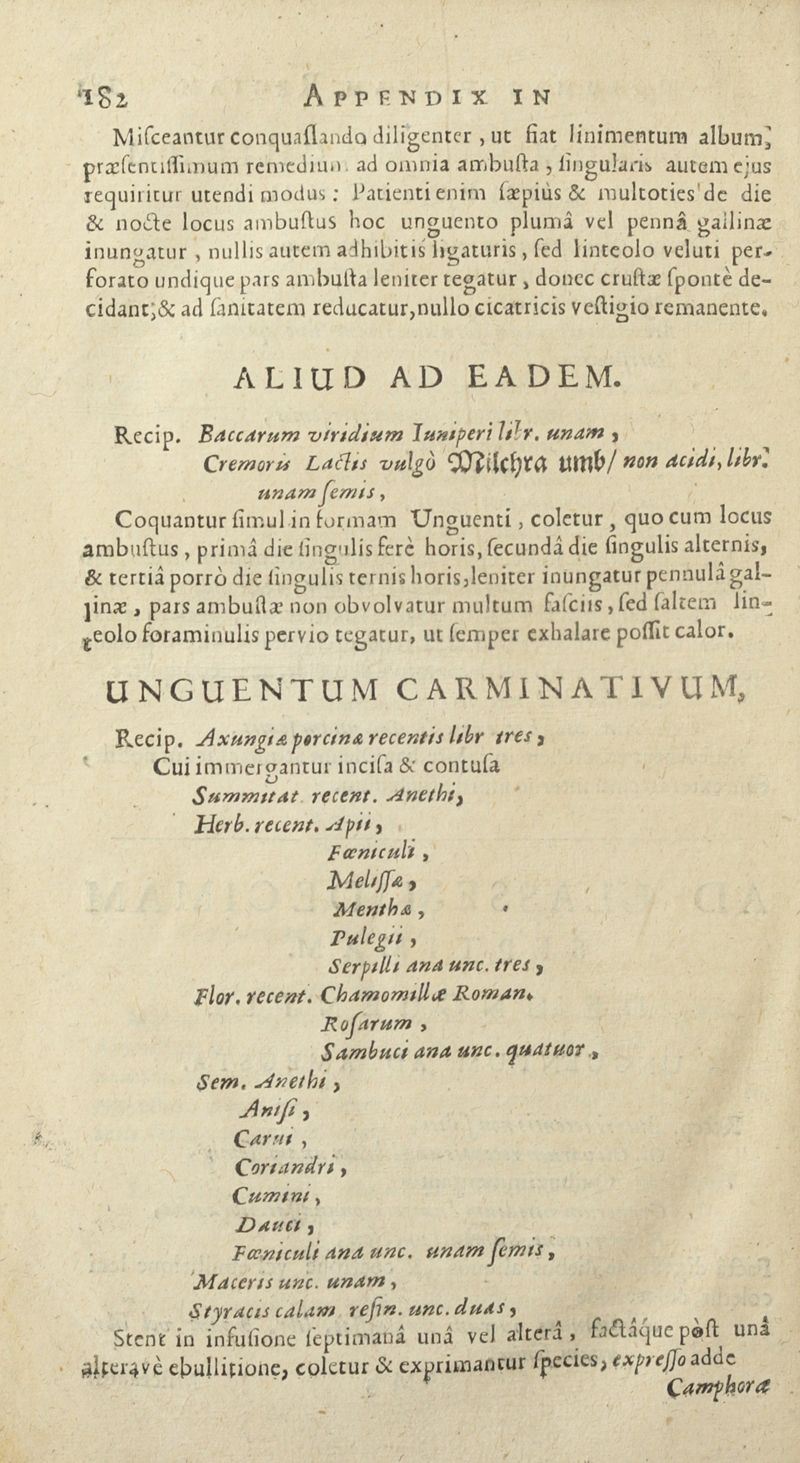 182 APPENDIX IN
Miſceantur conquaſſando diligenter, ut fiat linimentum album,
præſentiſſimum remedium ad omnia ambuſta, ſingularis autem ejus
requiritur utendi modus: Patienti enim ſæpiùs & multoties de die
& nocte locus ambuſtus hoc unguento plumâ vel pennâ gallinæ
inungatur, nullis autem adhibitis ligaturis, ſed linteolo veluti per-
forato undique pars ambuſta leniter tegatur, donec cruſtæ ſpontè de-
cidant; & ad ſanitatem reducatur, nullo cicatricis veſtigio remanente.
ALIUD AD EADEM.
Recip. Baccarum viridium Iuniperi libr. unam,
Cremoris Lactis vulgò Milchra umb/ non acidi, libr.
unam ſemis,
Coquantur ſimul in formam Unguenti, coletur, quo cum locus
ambuſtus, primâ die ſingulis ferè horis, ſecundâ die ſingulis alternis,
& tertiâ porrò die ſingulis ternis horis, leniter inungatur pennulâ gal-
linæ, pars ambuſtæ non obvolvatur multum faſciis, ſed ſaltem lin-
teolo foraminulis pervio tegatur, ut ſemper exhalare poſſit calor.
UNGUENTUM CARMINATIVUM,
Recip. Axungiæ porcinæ recentis libr tres,
Cui immergantur inciſa & contuſa
Summitat. recent. Anethi,
Herb. recent. Apii,
Fœniculi,
Meliſſæ,
Menthæ,
Pulegii,
Serpilli ana unc. tres,
Flor. recent. Chamomillæ Roman.
Roſarum,
Sambuci ana unc. quatuor,
Sem. Anethi,
Aniſi,
Carui,
Coriandri,
Cumini,
Dauci,
Fœniculi ana unc. unam ſemis,
Maceris unc. unam,
Styracis calam. reſin. unc. duas,
Stent in infuſione ſeptimanâ unâ vel alterâ, factâque poſt unâ
alterâvè ebullitione, coletur & exprimantur ſpecies, expreſſo adde
Camphoræ